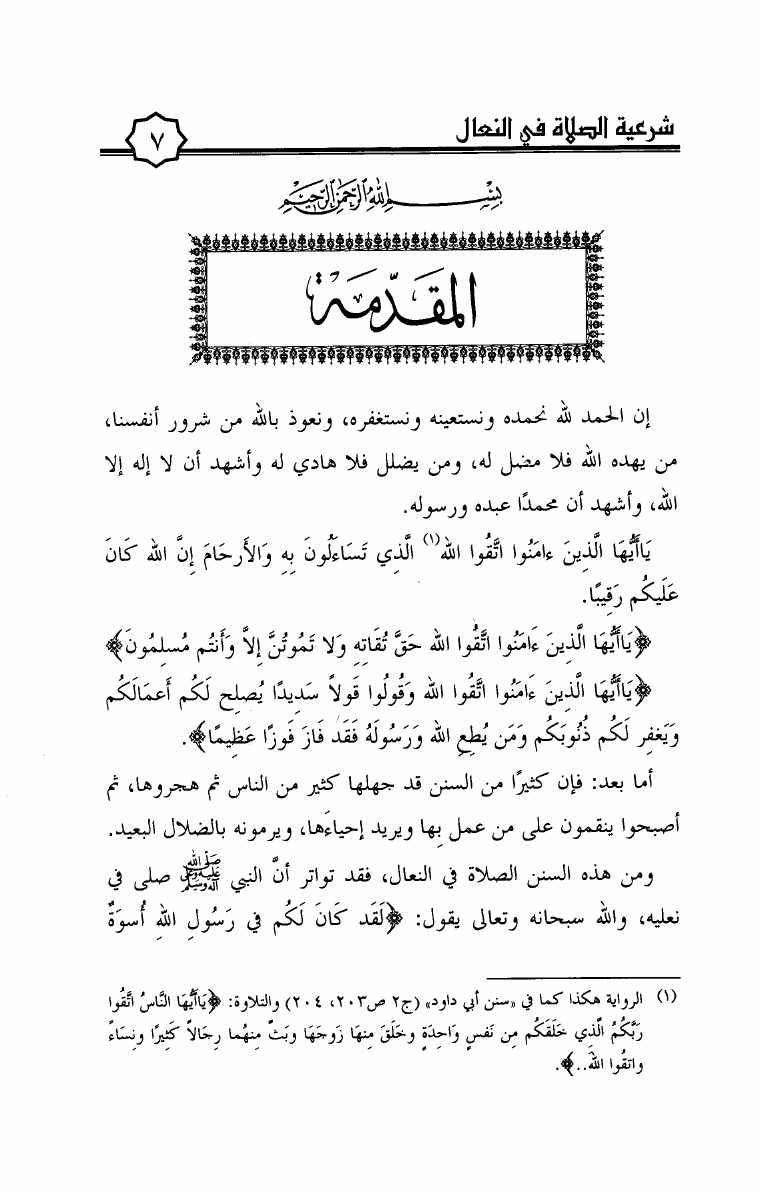 شرعية الصلاة في النعال
٧
بسم الله الرحمن الرحيم
المقدّمة
إن الحمد لله نحمده ونستعينه ونستغفره، ونعوذ بالله من شرور أنفسنا،
من يهده الله فلا مضل له، ومن يضلل فلا هادي له وأشهد أن لا إله إلا
الله، وأشهد أن محمدًا عبده ورسوله.
يَاأَيُّهَا الَّذِينَ ءامَنُوا اتَّقُوا الله(١) الَّذِي تَسَاءَلُونَ بِهِ وَالأَرحَامَ إِنَّ الله كَانَ
عَلَيكُم رَقِيبًا.
﴿يَاأَيُّهَا الَّذِينَ ءَامَنُوا اتَّقُوا الله حَقَّ تُقَاتِهِ وَلا تَمُوتُنَّ إِلاَّ وَأَنتُم مُسلِمُونَ﴾
﴿يَاأَيُّهَا الَّذِينَ ءَامَنُوا اتَّقُوا الله وَقُولُوا قَولاً سَدِيدًا يُصلِح لَكُم أَعمَالَكُم
وَيَغفِر لَكُم ذُنُوبَكُم وَمَن يُطِعِ الله وَرَسُولَهُ فَقَد فَازَ فَوزًا عَظِيمًا﴾.
أما بعد: فإن كثيرًا من السنن قد جهلها كثير من الناس ثم هجروها، ثم
أصبحوا ينقمون على من عمل بِها ويريد إحياءَها، ويرمونه بالضلال البعيد.
ومن هذه السنن الصلاة في النعال، فقد تواتر أنَّ النبي ﷺ صلى في
نعليه، والله سبحانه وتعالى يقول: ﴿لَقَد كَانَ لَكُم في رَسُولِ اللهِ أُسوَةٌ
(١) الرواية هكذا كما في «سنن أبي داود» (ج٢ ص٢٠٣، ٢٠٤) والتلاوة: ﴿يَاأَيُّهَا النَّاسُ اتَّقُوا
رَبَّكُمُ الَّذِي خَلَقَكُم مِن نَفسٍ وَاحِدَةٍ وخَلَقَ مِنهَا زَوجَهَا وبَثَّ مِنهُما رِجَالاً كَثِيرًا ونِسَاءً
واتقُوا اللهَ..﴾.